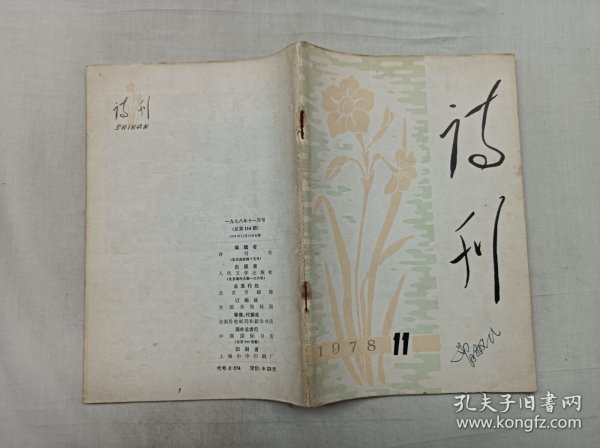 诗刊
SHIKAN
一九七八年十一月号
(总第114期)
编辑者
诗刊社
出版者
人民文学出版社
总发行处
北京市邮局
订购处
全国各地邮局
零售、代销处
全国各地邮局和新华书店
国外总发行
中国国际书店
印刷者
上海中华印刷厂
代号:2-274 定价:0.23元
1
诗刊
1978 11
孔夫子旧书网
www.kongfz.com